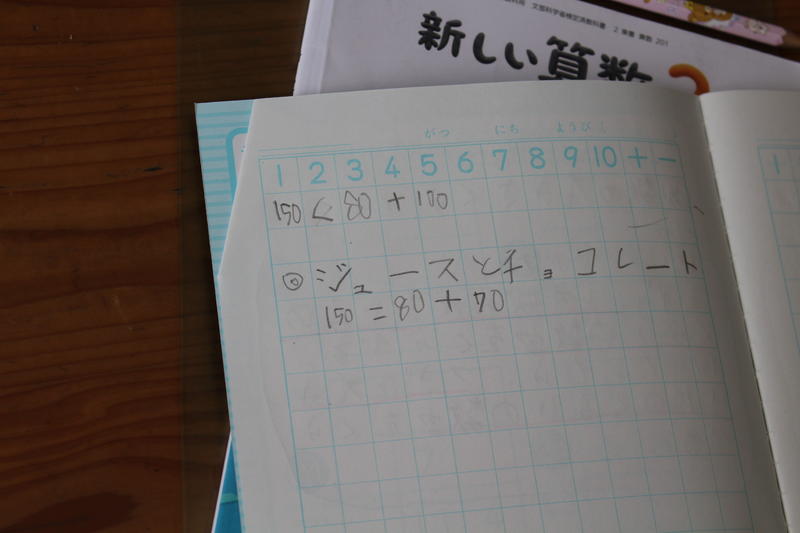 文部科学省検定済教科書 2 東書 算数 201
新しい算数 2
がつ にち ようび
1 2 3 4 5 6 7 8 9 10 + −
150 < 80 + 100
◎ ジュースとチョコレート
150 = 80 + 70
1